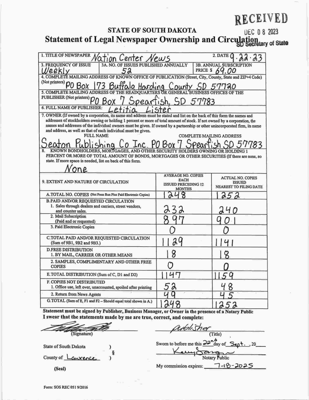 RECEIVED
DEC 08 2023
SD Secretary of State
STATE OF SOUTH DAKOTA
Statement of Legal Newspaper Ownership and Circulation
1. TITLE OF NEWSPAPER Nation Center News 2. DATE 9-22-23
3. FREQUENCY OF ISSUE Weekly
3A. NO. OF ISSUES PUBLISHED ANNUALLY 52
3B. ANNUAL SUBSCRIPTION PRICE $ 69.00
4. COMPLETE MAILING ADDRESS OF KNOWN OFFICE OF PUBLICATION (Street, City, County, State and ZIP+4 Code) (Not printers)
PO Box 173 Buffalo Harding County SD 57720
5. COMPLETE MAILING ADDRESS OF THE HEADQUARTERS OF THE GENERAL BUSINESS OFFICE OF THE PUBLISHER (Not printer)
PO Box 7 Spearfish, SD 57783
6. FULL NAME OF PUBLISHER: Letitia Lister
7. OWNER (If owned by a corporation, its name and address must be stated and also immediately thereafter the names and addresses of stockholders owning or holding 1 percent or more of total amount of stock. If not owned by a corporation, the names and addresses of the individual owners must be given. If owned by a partnership or other unincorporated firm, its name and address, as well as that of each individual must be given.
FULL NAME COMPLETE MAILING ADDRESS
Seaton Publishing Co Inc. PO Box 7 Spearfish SD 57783
8. KNOWN BONDHOLDERS, MORTGAGEES, AND OTHER SECURITY HOLDERS OWNING OR HOLDING 1 PERCENT OR MORE OF TOTAL AMOUNT OF BONDS, MORTGAGES OR OTHER SECURITIES (If there are none, so state. If more space is needed, list on back of this form.
None
9. EXTENT AND NATURE OF CIRCULATION
AVERAGE NO. COPIES EACH ISSUES PRECEDING 12 MONTHS
ACTUAL NO. COPIES ISSUES NEAREST TO FILING DATE
A. TOTAL NO. COPIES 1248 1252
B. PAID AND/OR REQUESTED CIRCULATION
1. Sales through dealers and carriers, street vendors, and counter sales. 232 240
2. Mail Subscription (Paid and/or requested) 897 901
3. Paid Electronic Copies 0 0
C. TOTAL PAID AND/OR REQUESTED CIRCULATION (Sum of 9B1, 9B2 and 9B3.) 1129 1141
D. FREE DISTRIBUTION
1. BY MAIL, CARRIER OR OTHER MEANS 18 18
2. SAMPLES, COMPLIMENTARY AND OTHER FREE COPIES 0 0
E. TOTAL DISTRIBUTION (Sum of C, D1 and D2) 1147 1159
F. COPIES NOT DISTRIBUTED
1. Office use, left over, unaccounted, spoiled after printing 52 48
2. Return from News Agents 49 45
G. TOTAL (Sum of E, F1 and F2 - Should equal total shown in A.) 1248 1252
Statement must be signed by Publisher, Business Manager, or Owner in the presence of a Notary Public
I swear that the statements made by me are true, correct, and complete:
(Signature) publisher (Title)
State of South Dakota ) Sworn to before me this 22nd day of Sept. , 20
County of Lawrence ) §
Notary Public
(Seal) My commission expires: 7-18-2025
Form: SOS REC 051 9/2016